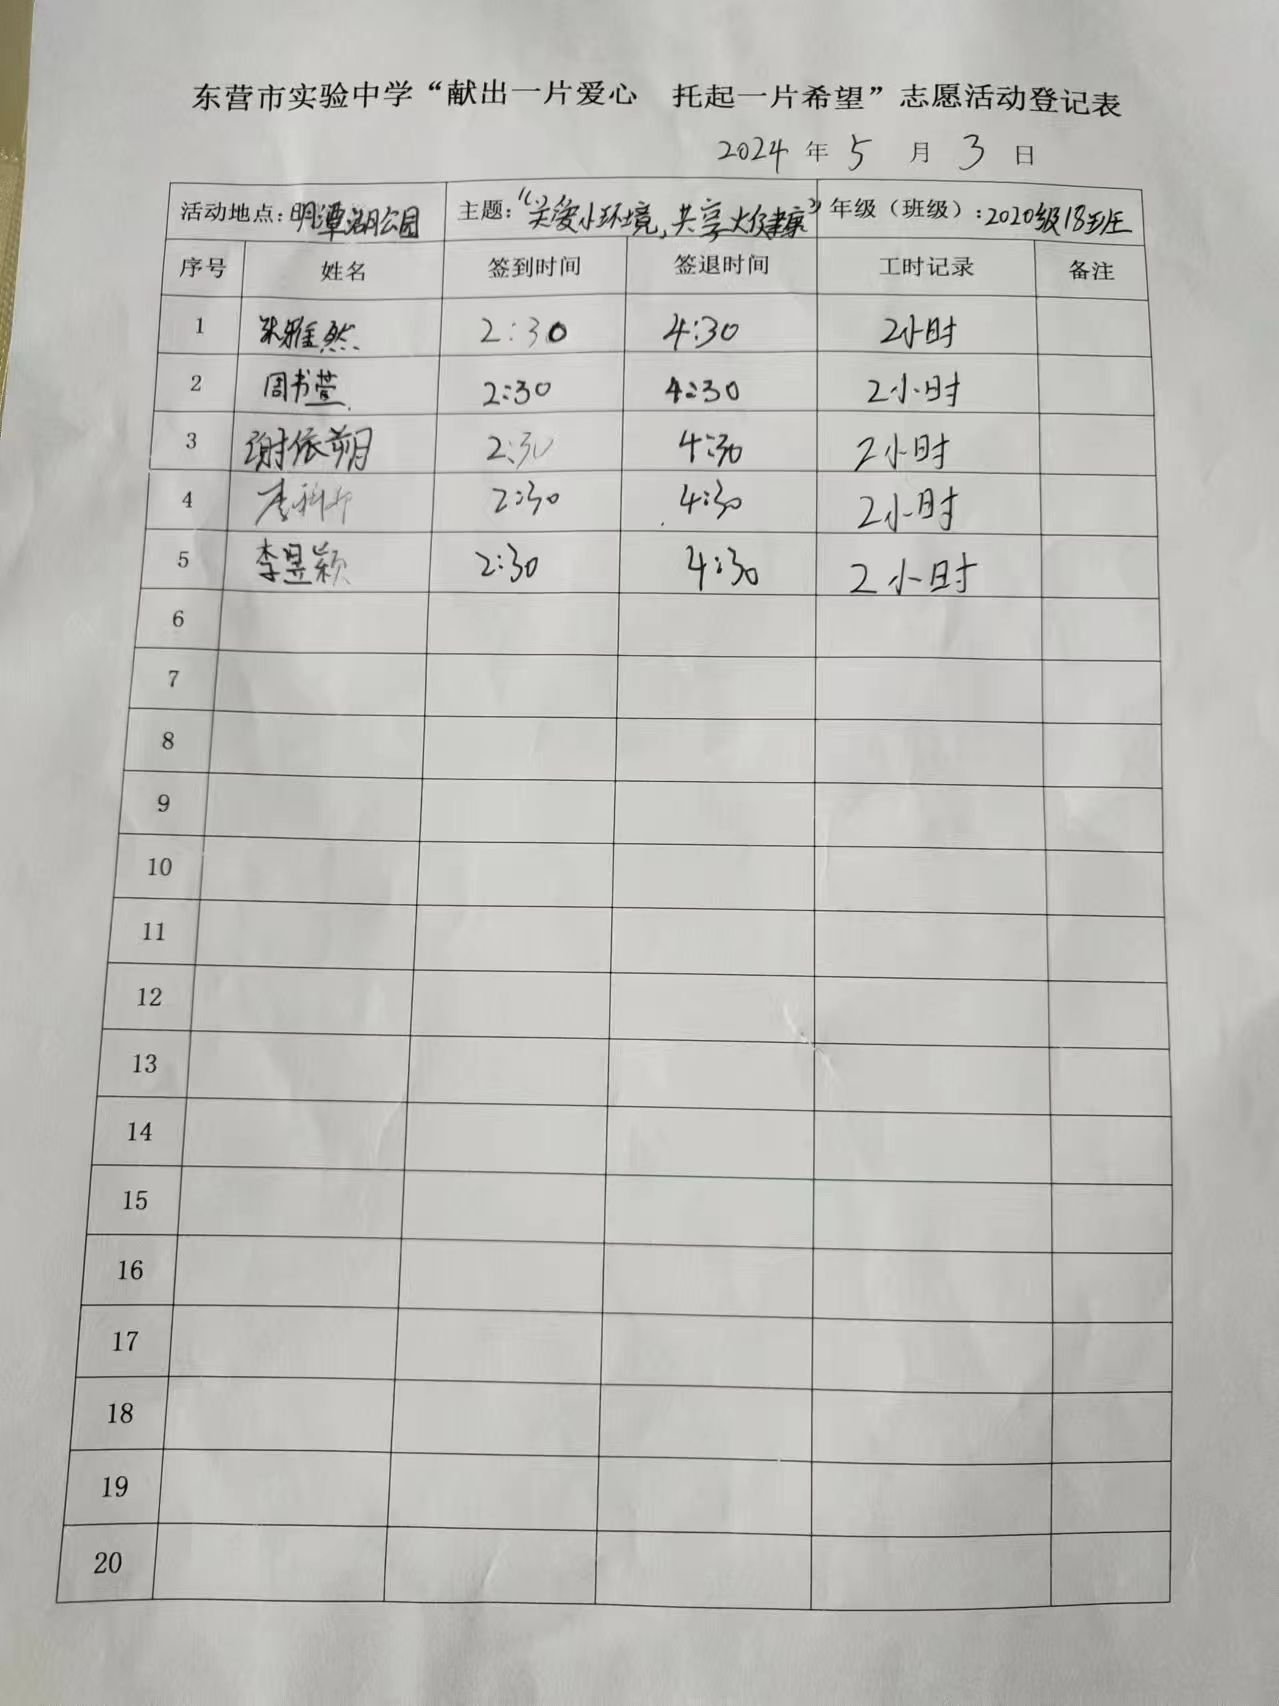 东营市实验中学“献出一片爱心 托起一片希望”志愿活动登记表
2024 年 5 月 3 日
活动地点：明潭湖公园 主题：“关爱小环境，共享大健康” 年级（班级）：2020级18班
序号 姓名 签到时间 签退时间 工时记录 备注
1 朱雅然 2:30 4:30 2小时
2 周书萱 2:30 4:30 2小时
3 谢依朔 2:30 4:30 2小时
4 2:30 4:30 2小时
5 李昱颖 2:30 4:30 2小时
6
7
8
9
10
11
12
13
14
15
16
17
18
19
20